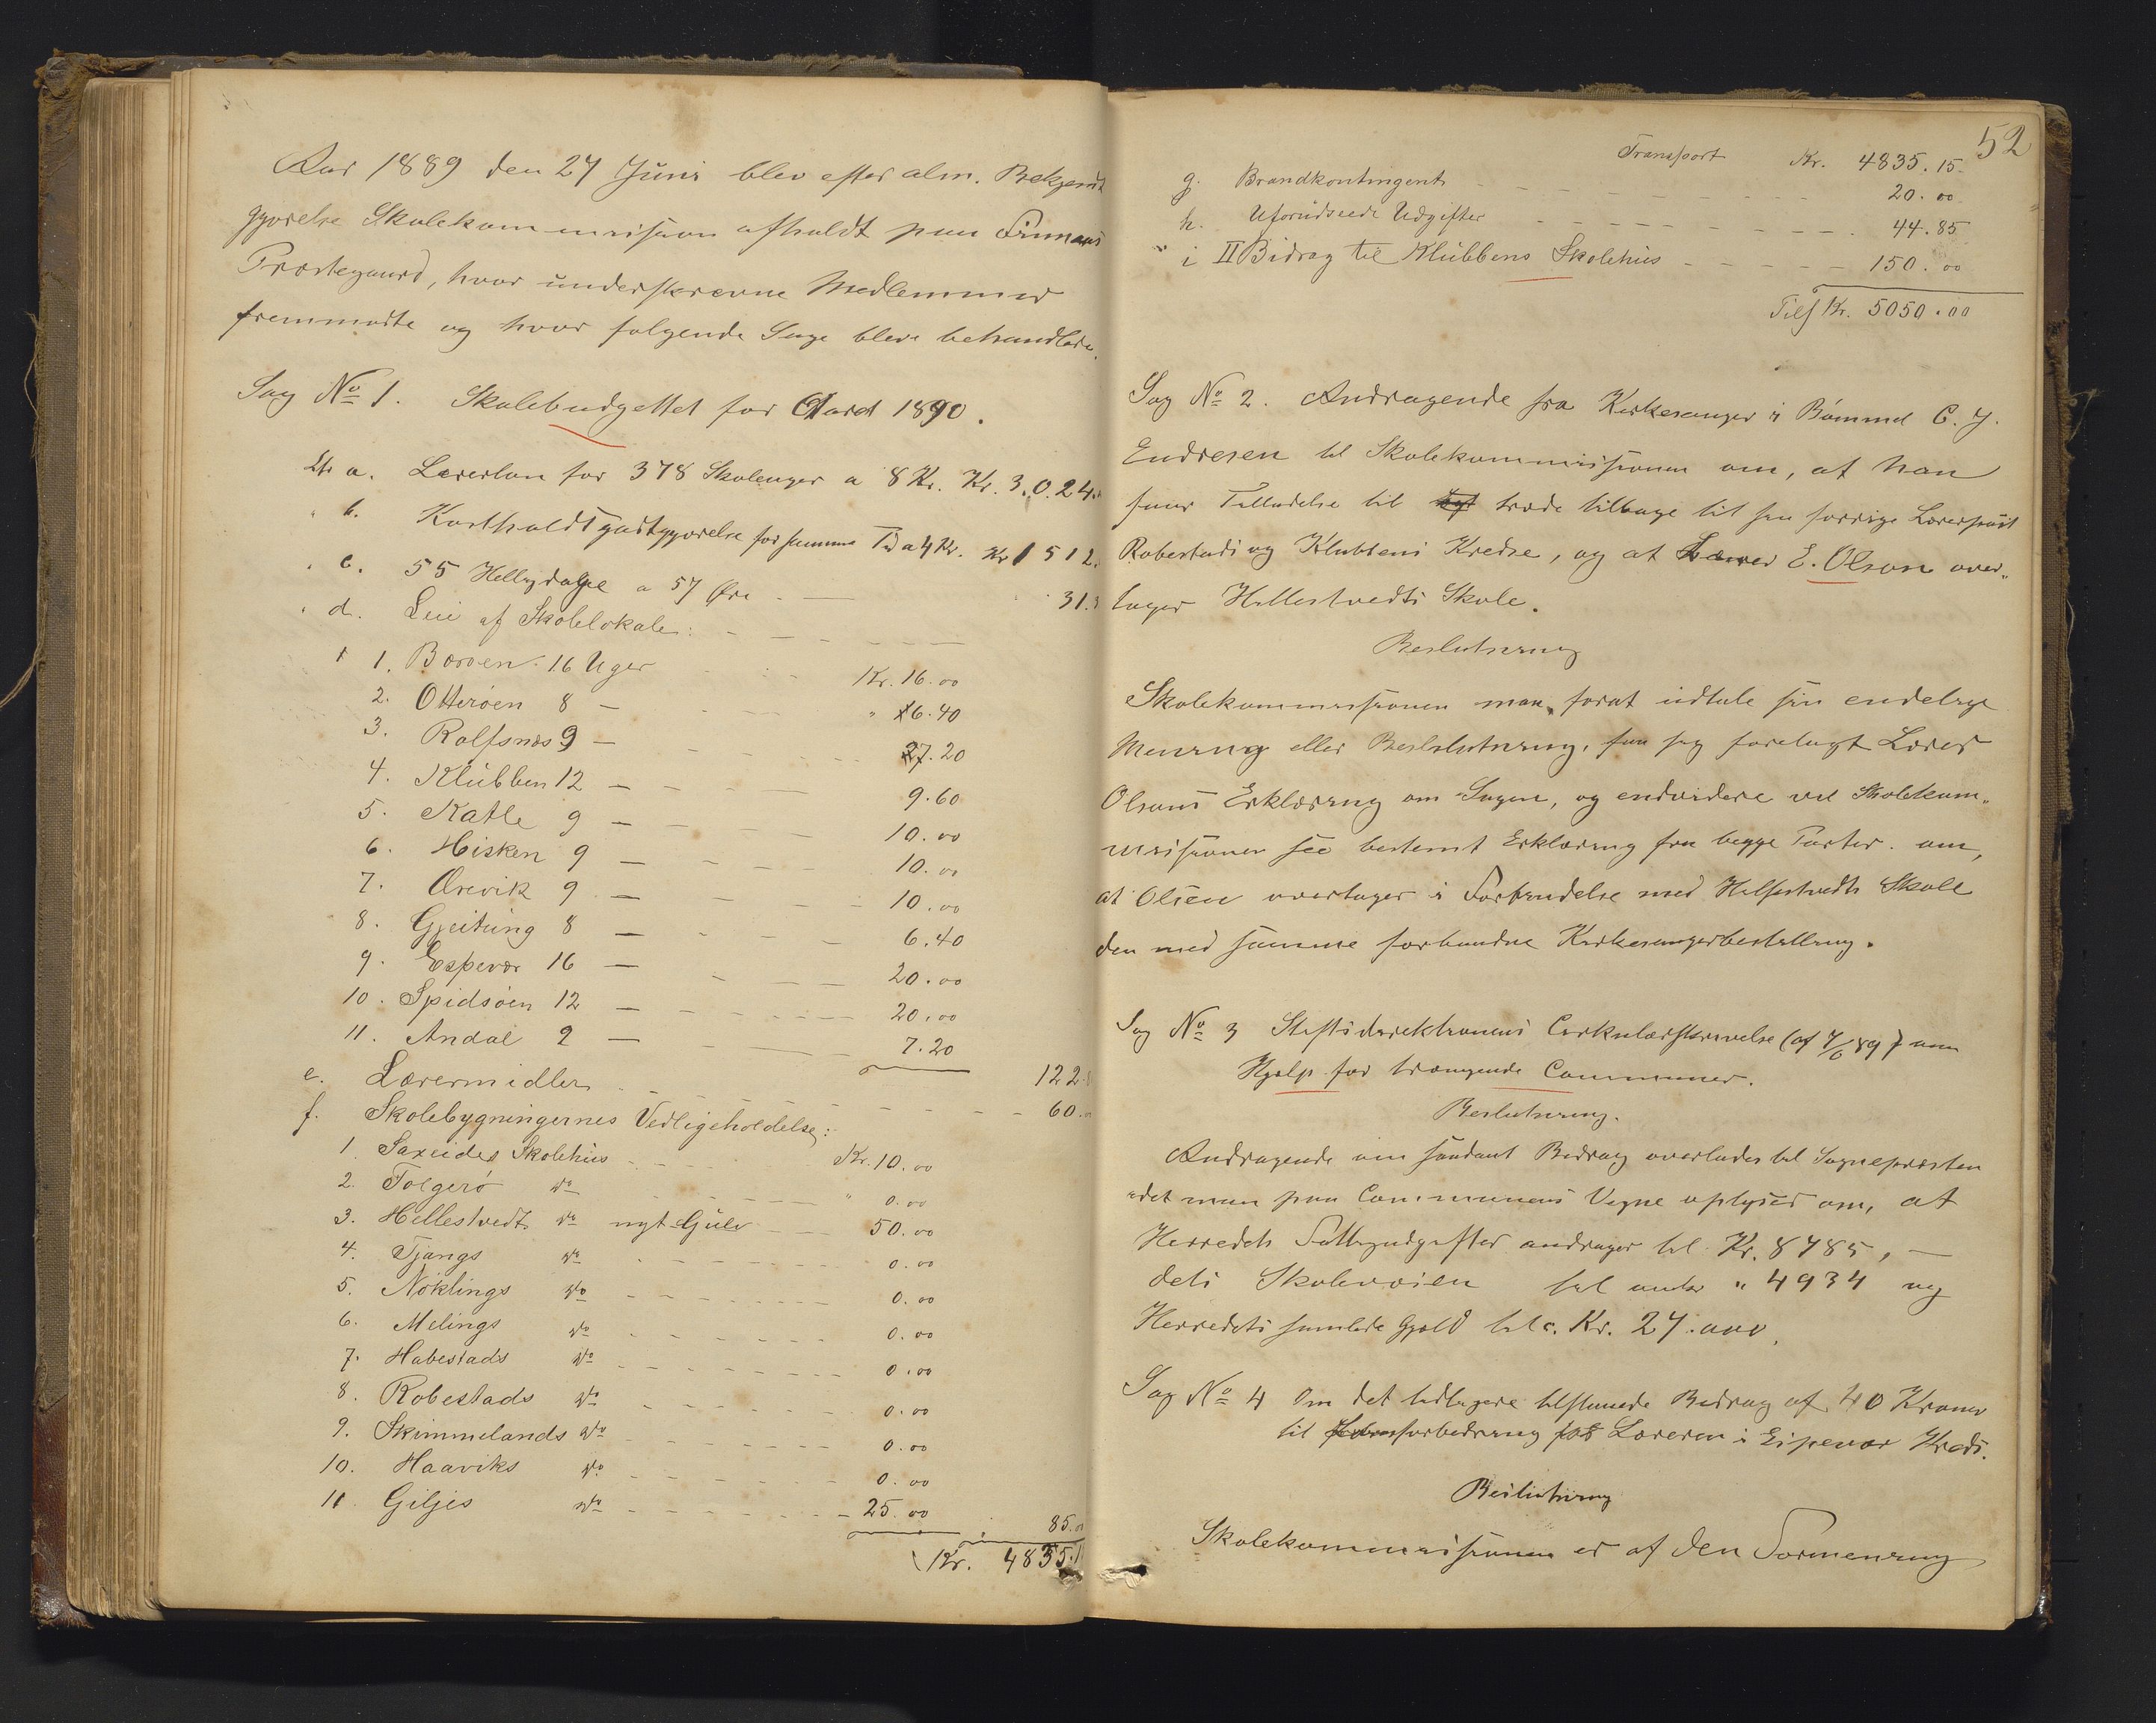 Aar 1889 den 27 Juni blev efter alm. Bekjendt
gjørelse Skolekommission afholdt paa Finnaas
Præstegaard, hvor underskrevne Medlemmer
fremmødte og hvor følgende Sage bleve behandlede.
Sag No 1. Skolebudgettet for Aaret 1890.
Ltr a. Lærerløn for 378 Skoleuger a 8 Kr. Kr. 3.024.
" b. Kostholdsgodtgjørelse for samme Tid a 4 Kr. Kr 1512.
" c. 55 Helligdage a 57 Øre - 31.3
" d. Leie af Skolelokaler:
1. Børøen 16 Uger Kr. 16.00
2. Otterøen 8 — " 6.40
3. Rolfsnæs 9 — 7.20
4. Klubben 12 — 9.60
5. Katle 9 — 10.00
6. Hisken 9 — 10.00
7. Ørevik 9 — 10.00
8. Gjeitung 8 — 6.40
9. Espevær 16 — 20.00
10. Spidsøen 12 — 20.00
11. Andal 9 — 7.20
e. Læremidler 122.8
60.0
f. Skolebygningernes Vedligeholdelse:
1. Saxeides Skolehus Kr. 10.00
2. Folgerø do " 0.00
3. Hellestvedt do nyt Gulv 50.00
4. Tjangs do 0.00
5. Nøklings do 0.00
6. Melings do 0.00
7. Habestads do 0.00
8. Robestads do 0.00
9. Skimmelands do 0.00
10. Haaviks do 0.00
11. Giljes do 25.00
85.0
Kr. 4835.1
52
Transport Kr. 4835.15
g. Brandkontingent 20.00
h. Uforudseede Udgifter 44.85
" i II Bidrag til Klubbens Skolehus 150.00
Tils Kr. 5050.00
Sag No 2. Andragende fra Kirkesanger i Bømmel C. J.
Endresen til Skolekommissionen om, at han
faar Tilladelse til træde tilbage til sin forrige Lærerpost
Robestads og Klubbens Kredse, og at Lærer E. Olson over"
tager Hellestvedts Skole.
Beslutning
Skolekommissionen maa, forat udtale sin endelige
Mening eller Beslutning, faa sig forelagt Lærer
Olsons Erklæring om Sagen, og endvidere vil Skolekom"
missionen see bestemt Erklæring fra begge Parter om,
at Olsen overtager i Forbindelse med Hellestvedts Skole
den med samme forbundne Kirkesangerbestilling.
Sag No 3 Stiftsdirektionens Cirkulærskrivelse (af 7/6 89) om
Hjælp for trængende Communer.
Beslutning.
Andragende om saadant Bidrag overlades til Sognepræsten
idet man paa Communens Vegne oplyser om, at
Herredets Fattigudgifter andrager til Kr. 8785, —
dets Skolevæsen til " 4934 og
Herredets samlede Gjæld til c. Kr. 27.000.
Sag No 4 Om det tidligere tilstaaede Bidrag af 40 Kroner
til Lønsforbedring for Læreren i Espevær Kreds.
Beslutning
Skolekommissionen er af den Formening